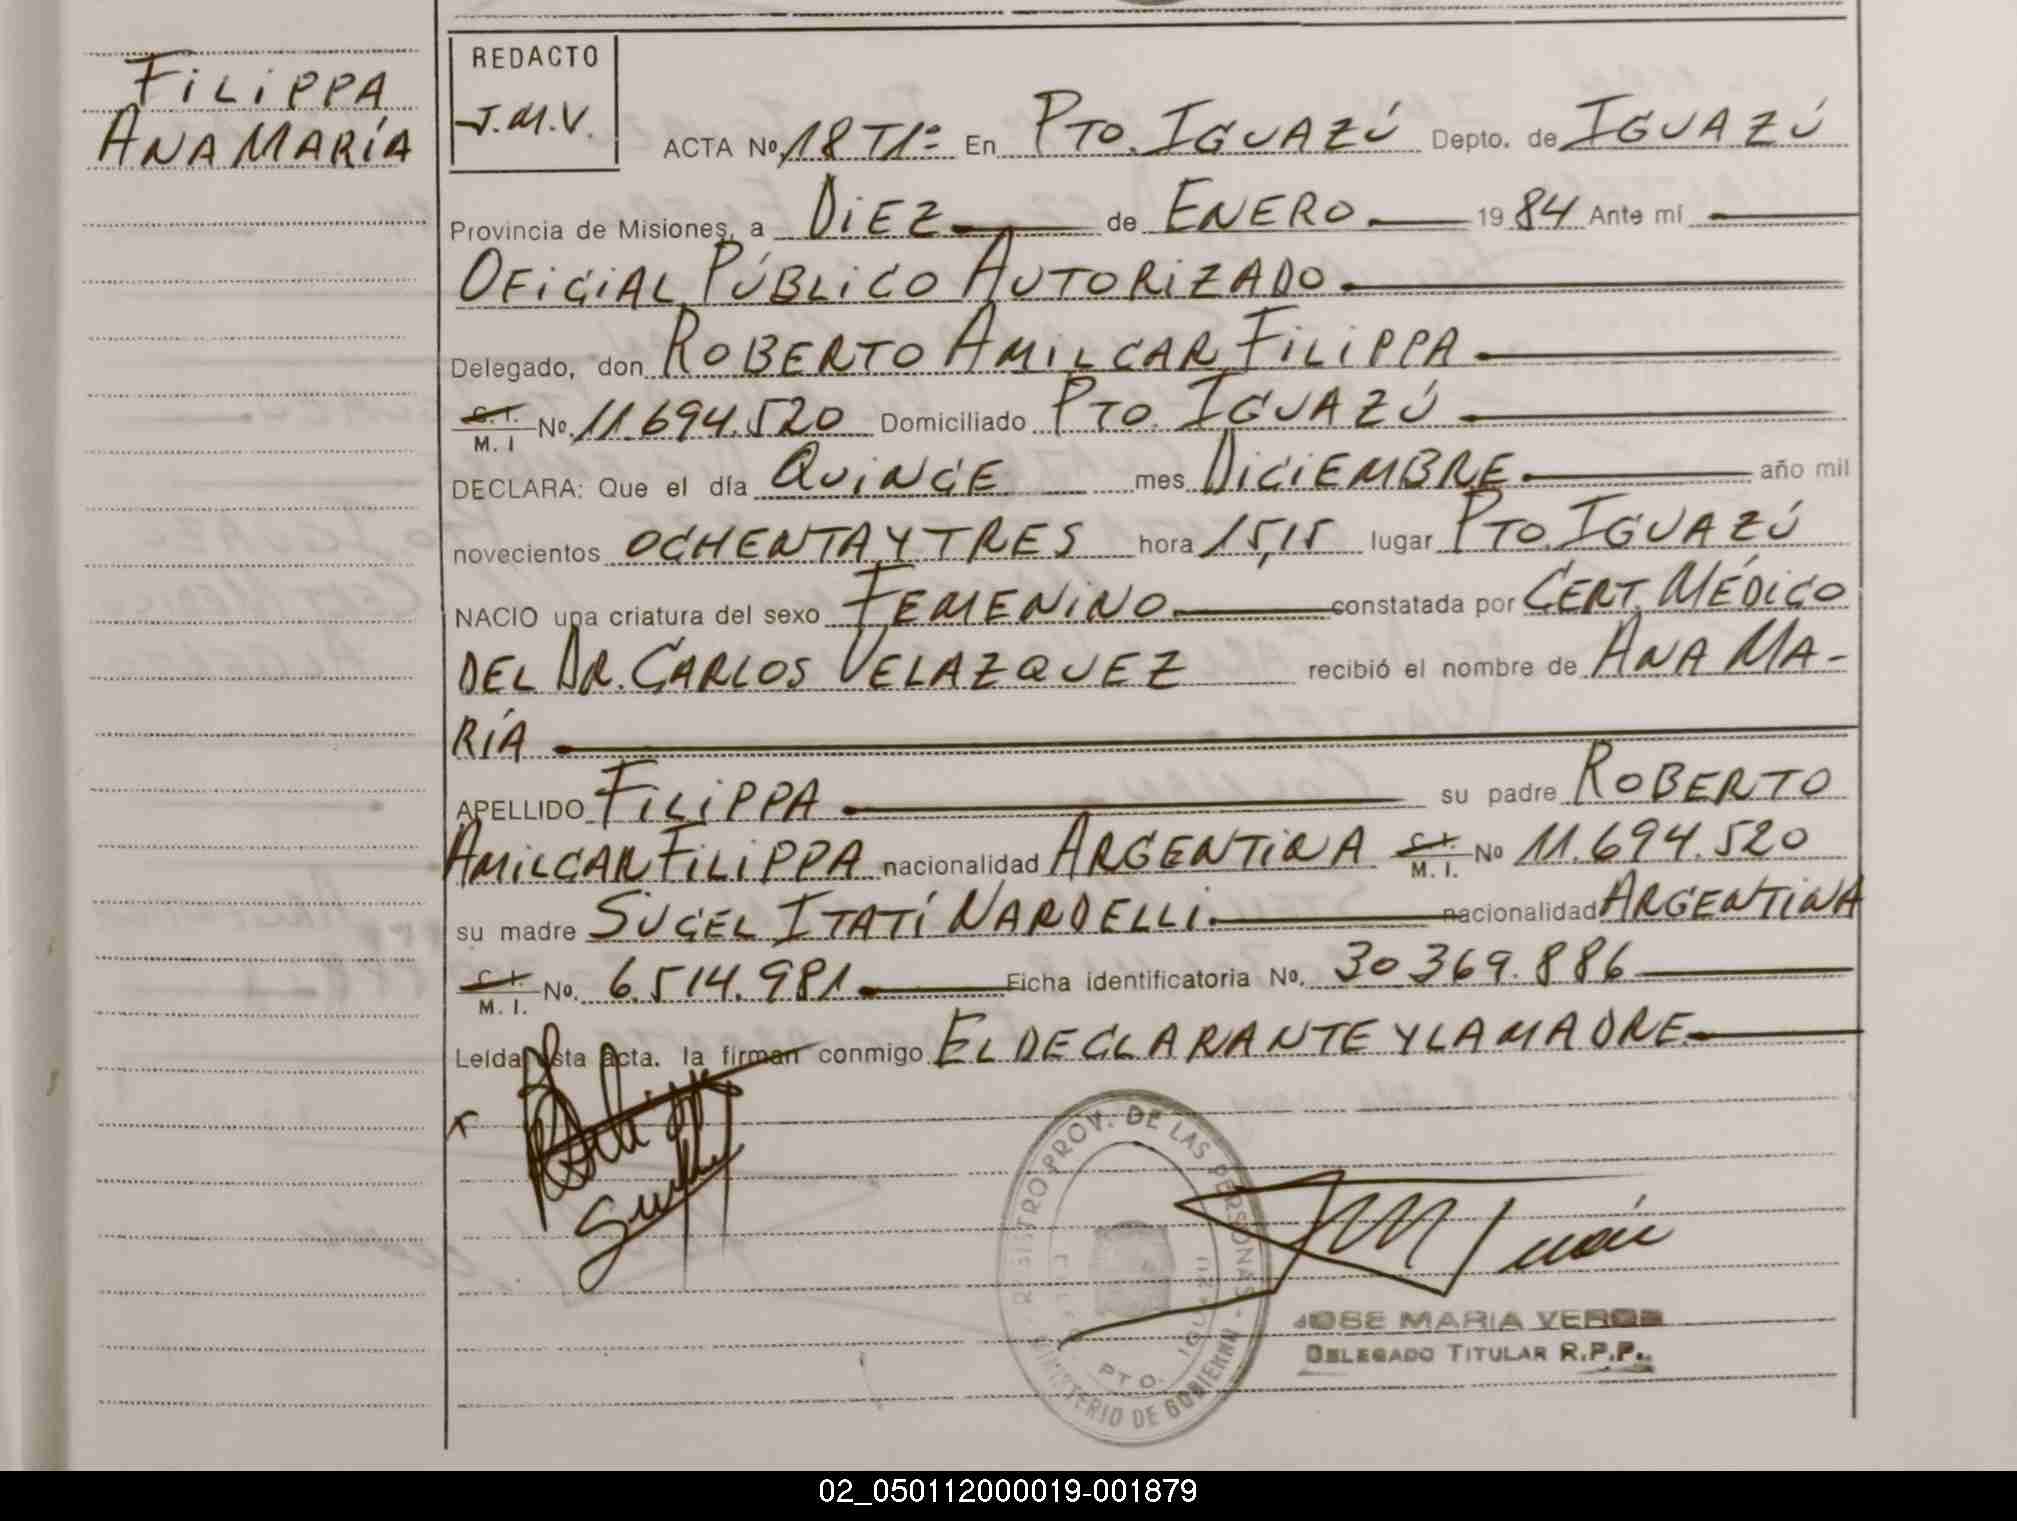 FILIPPA
ANA MARÍA
REDACTO
J.M.V.
ACTA Nº 18 T1º En PTO. IGUAZÚ Depto. de IGUAZÚ
Provincia de Misiones, a DIEZ de ENERO 1984 Ante mí
OFICIAL PÚBLICO AUTORIZADO
Delegado, don ROBERTO AMILCAR FILIPPA
C. I. M. I Nº. 11.694.520 Domiciliado PTO. IGUAZÚ
DECLARA: Que el día QUINCE mes DICIEMBRE año mil
novecientos OCHENTA Y TRES hora 15,15 lugar PTO. IGUAZÚ
NACIO una criatura del sexo FEMENINO constatada por CERT. MÉDICO
DEL DR. CARLOS VELAZQUEZ recibió el nombre de ANA MA-
RÍA
APELLIDO FILIPPA su padre ROBERTO
AMILCAR FILIPPA nacionalidad ARGENTINA C. I. M. I. Nº 11.694.520
su madre SUGEL ITATÍ NARDELLI nacionalidad ARGENTINA
C. I. M. I. Nº. 6.514.981 Ficha identificatoria Nº. 30 369.886
Leída esta acta. la firman conmigo EL DECLARANTE Y LA MADRE
REGISTRO PROV. DE LAS PERSONAS - MINISTERIO DE GOBIERNO
PTO. IGUAZU
JOSE MARIA VERON
DELEGADO TITULAR R.P.P.
02_050112000019-001879